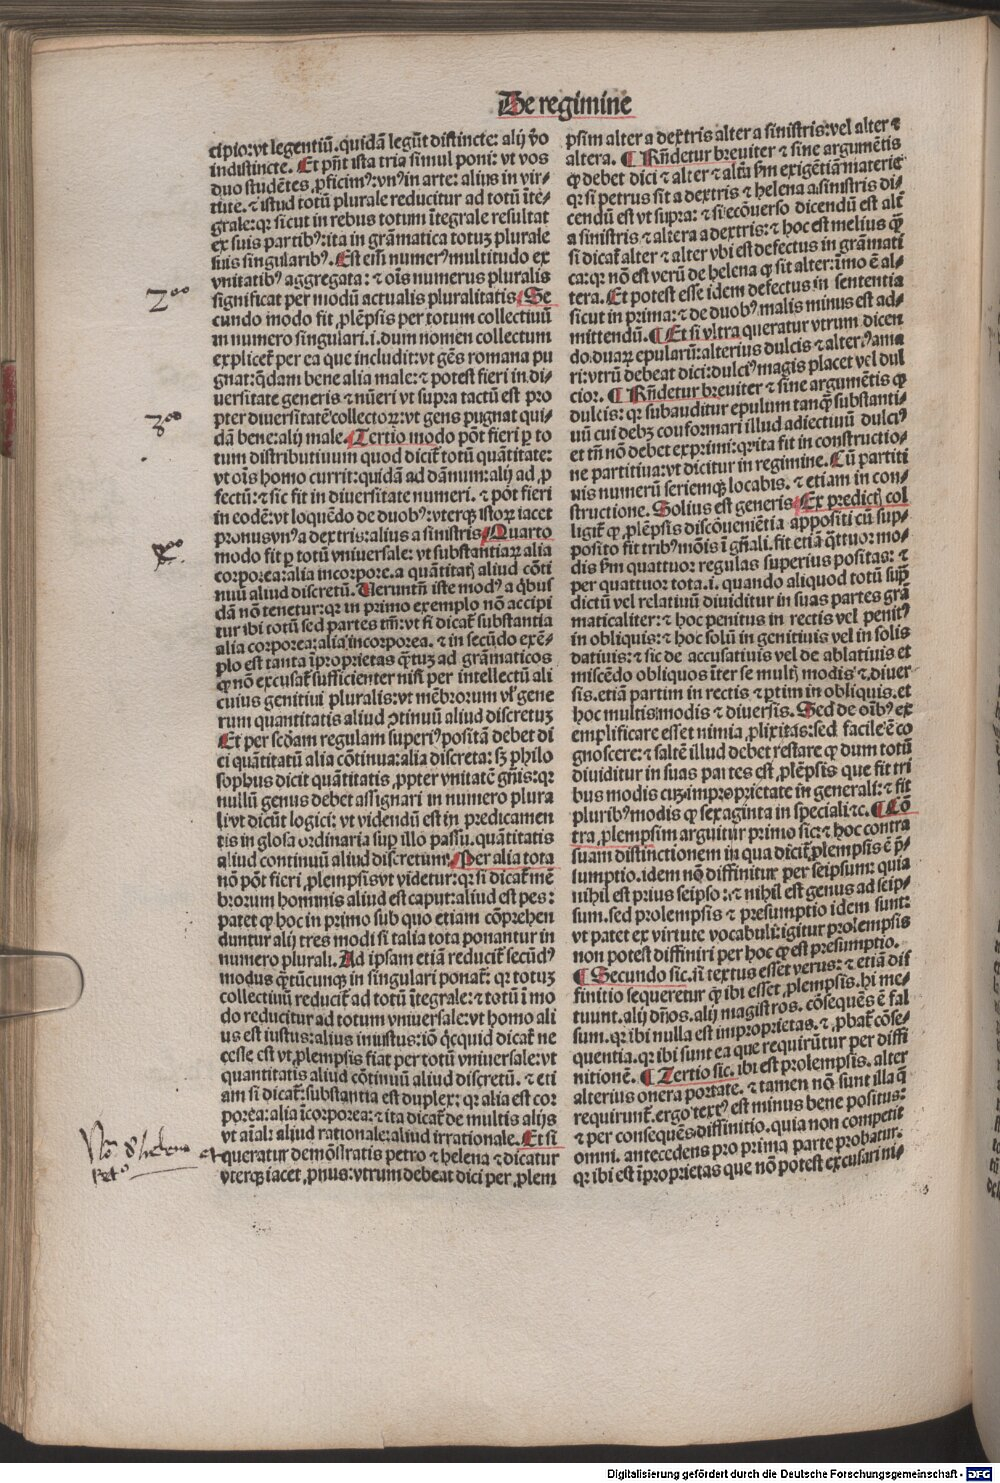 De regimine
cipio: vt legentiū. quidā legūt distincte: alij v̓o
indistincte. Et pn̄t ista tria simul poni: vt vos
duo studētes ꝓficimꝰ: vnꝰ in arte: alius in vir-
tute. ⁊ istud totū plurale reducitur ad totū īte-
grale: qr sicut in rebus totum ītegrale resultat
ex suis partibꝰ: ita in grāmatica totuꝫ plurale
suis singularibꝰ. Est em̄ numerꝰ multitudo ex
vnitatibꝰ aggregata: ⁊ oīs numerus pluralis
significat per modū actualis pluralitatis. Se
cundo modo fit ꝓlēpsis per totum collectiuū
in numero singulari. i. dum nomen collectum
explicet̄ per ea que includit: vt gēs romana pu
gnat: q̄dam bene alia male: ⁊ potest fieri in di-
uersitate generis ⁊ nūeri vt supra tactū est pro
pter diuersitatē collectoꝝ: vt gens pugnat qui-
dā bene: alij male. Tertio modo pōt fieri ꝑ to
tum distributiuum quod dicit̄ totū quātitate:
vt oīs homo currit: quidā ad dānum: alij ad ꝓ
fectū: ⁊ sic fit in diuersitate numeri. ⁊ pōt fieri
in eodē: vt loquēdo de duobꝰ: vterqꝫ istoꝝ iacet
pronus vnꝰ a dextris: alius a sinistris. Quarto
modo fit ꝑ totū vniuersale: vt substantiaꝝ alia
corporea: alia incorpore. a quātitatꝫ aliud cōti
nuū aliud discretū. Veruntn̄ iste modꝰ a q̇bus
dā nō tenetur: qr in primo exemplo nō accipi
tur ibi totū sed partes tm̄: vt si dicat̄ substantia
alia corporea: alia incorporea. ⁊ in secūdo exē-
plo est tanta īproprietas q̄tuꝫ ad grāmaticos
ꝙ nō excusat̄ sufficienter nisi per intellectū ali
cuius genitiui pluralis: vt mēbrorum vl̓ gene
rum quantitatis aliud ꝯtinuū aliud discretuꝫ
Et per scdam regulam superiꝰ positā debet di
ci quātitatū alia cōtinua: alia discreta: sꝫ philo
sophus dicit quātitatis ꝓpter vnitatē gn̄is: qr
nullū genus debet assignari in numero plura
li vt dicūt logici: vt videndū est in predicamen
tis in glosa ordinaria sup illo passu. quātitatis
aliud continuū aliud discretum. Per alia tota
nō pōt fieri ꝓlempsis vt videtur: qr si dicat̄ mē
brorum hominis aliud est caput: aliud est pes:
patet ꝙ hoc in primo sub quo etiam cōprehen
duntur alij tres modi si talia tota ponantur in
numero plurali. Ad ipsam etiā reducit̄ secūdꝰ
modus q̄tūcunqꝫ in singulari ponat̄: qr totuꝫ
collectiuū reducit̄ ad totū ītegrale: ⁊ totū ī mo
do reducitur ad totum vniuersale: vt homo ali
us est iustus: alius iniustus: iō q̇cquid dicat̄ ne
cesse est vt ꝓlempsis fiat per totū vniuersale: vt
quantitatis aliud cōtinuū aliud discretū. ⁊ eti
am si dicat̄: substantia est duplex: qr alia est cor
porea: alia īcorporea: ⁊ ita dicat̄ de multis alijs
vt aīal: aliud rationale: aliud irrationale. Et si
queratur demōstratis petro ⁊ helena ⁊ dicatur
vterqꝫ iacet ꝓnus: vtrum debeat dici per ꝓlem
psim alter a dextris alter a sinistris: vel alter ⁊
altera. ¶ Rn̄detur breuiter ⁊ sine argumētis
ꝙ debet dici ⁊ alter ⁊ altꝰ ẜm exigētiā materie
qr si petrus sit a dextris ⁊ helena a sinistris di-
cendū est vt supra: ⁊ si ecōuerso dicendū est alt̄
a sinistris ⁊ altera a dextris: ⁊ hoc est melius q̄
si dicat̄ alter ⁊ alter vbi est defectus in grāmati
ca: qr nō est verū de helena ꝙ sit alter: īmo ē al-
tera. Et potest esse idem defectus in sententia
sicut in prima: ⁊ de duobꝰ malis minus est ad-
mittendū. ¶ Et si vltra queratur vtrum dicen
do. duaꝝ epularū: alterius dulcis ⁊ alterꝰ ama
ri: vtrū debeat dici: dulciꝰ magis placet vel dul
cior. ¶ Rn̄detur breuiter ⁊ sine argumētis ꝙ
dulcis: qr subauditur epulum tanq̄ substanti-
uū cui debꝫ conformari illud adiectiuū dulciꝰ
et tn̄ nō debet exprimi: qr ita fit in constructio-
ne partitiua: vt dicitur in regimine. Cū partiti
uis numerū seriemqꝫ locabis. ⁊ etiam in con-
structione. Solius est generis. Ex predictꝫ col
ligit̄ ꝙ ꝓlēpsis discōueniētia appositi cū sup-
posito fit tribꝰ mōis ī gn̄ali. fit etiā q̄ttuor mo-
dis ẜm quattuor regulas superius positas: ⁊
per quattuor tota. i. quando aliquod totū sup̄
dictū vel relatiuū diuiditur in suas partes grā
maticaliter: ⁊ hoc penitus in rectis vel penitꝰ
in obliquis: ⁊ hoc solū in genitiuis vel in solis
datiuis: ⁊ sic de accusatiuis vel de ablatiuis et
miscēdo obliquos īter se multꝫ modis ⁊ diuer
sis. etiā partim in rectis ⁊ ꝑtim in obliquis. et
hoc multis modis ⁊ diuersis. Sed de oībꝰ ex
emplificare esset nimia ꝓlixitas: sed facile ē co
gnoscere: ⁊ saltē illud debet restare ꝙ dum totū
diuiditur in suas partes est ꝓlēpsis que fit tri
bus modis cuꝫ improprietate in generali: ⁊ fit
pluribꝰ modis ꝙ sexaginta in speciali ⁊c. ¶ Cō
tra ꝓlempsim arguitur primo sic: ⁊ hoc contra
suam distinctionem in qua dicit̄ ꝓlempsis ē p̄-
sumptio. idem nō diffinitur per seipsum: quia
nihil est prius seipso: ⁊ nihil est genus ad seip-
sum. sed prolempsis ⁊ presumptio idem sunt:
vt patet ex virtute vocabuli: igitur prolempsis
non potest diffiniri per hoc ꝙ est presumptio.
¶ Secundo sic. si textus esset verus: ⁊ etiā dif
finitio sequeretur ꝙ ibi esset ꝓlempsis. hi me-
tuunt. alij dn̄os. alij magistros. cōsequēs ē fal
sum. qr ibi nulla est improprietas. ⁊ ꝓbat̄ cōse-
quentia. qr ibi sunt ea que requirūtur per diffi
nitionē. ¶ Tertio sic. ibi est prolempsis. alter
alterius onera portate. ⁊ tamen nō sunt illa q̄
requirunt̄. ergo textꝰ est minus bene positus:
⁊ per consequēs diffinitio. quia non competit
omni. antecedens pro prima parte probatur.
qr ibi est īproprietas que nō potest excusari ni-
2ᵒᵒ
3ᵒᵒ
Digitalisierung gefördert durch die Deutsche Forschungsgemeinschaft - DFG